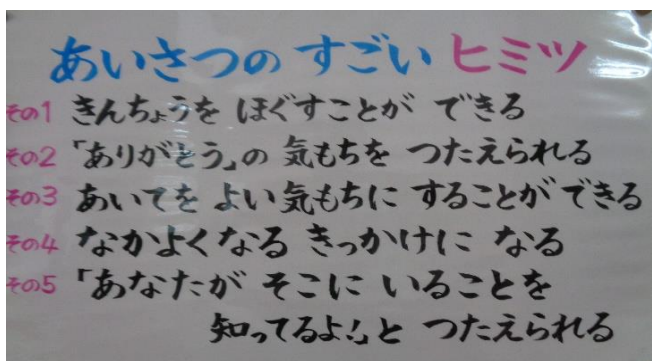 あいさつの すごい ヒミツ
その1 きんちょうを ほぐすことが できる
その2 「ありがとう」の 気もちを つたえられる
その3 あいてを よい気もちに することが できる
その4 なかよくなる きっかけに なる
その5 「あなたが そこに いることを
知ってるよ!」と つたえられる